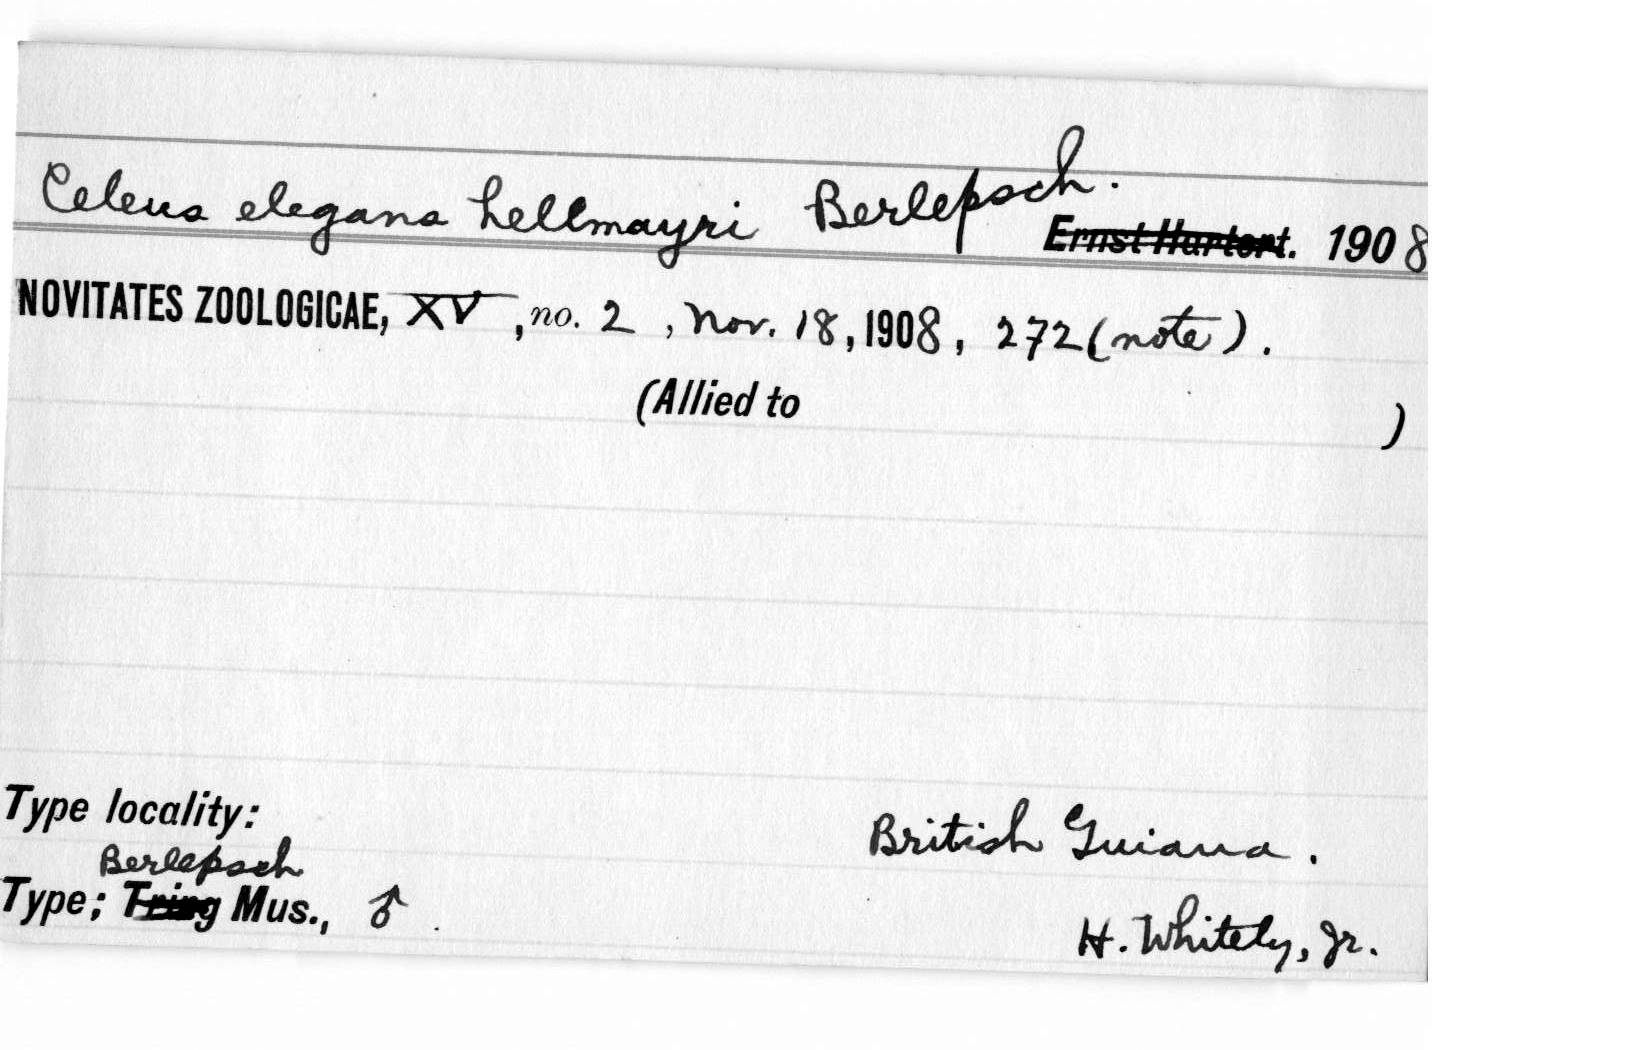 Celeus elegans hellmayri Berlepsch.
Ernst Hartert. 1908
NOVITATES ZOOLOGICAE, XV, no. 2, Nov. 18, 1908, 272 (note).
(Allied to )
Type locality: British Guiana.
Berlepsch
Type; Tring Mus., ♂. H. Whitely, Jr.